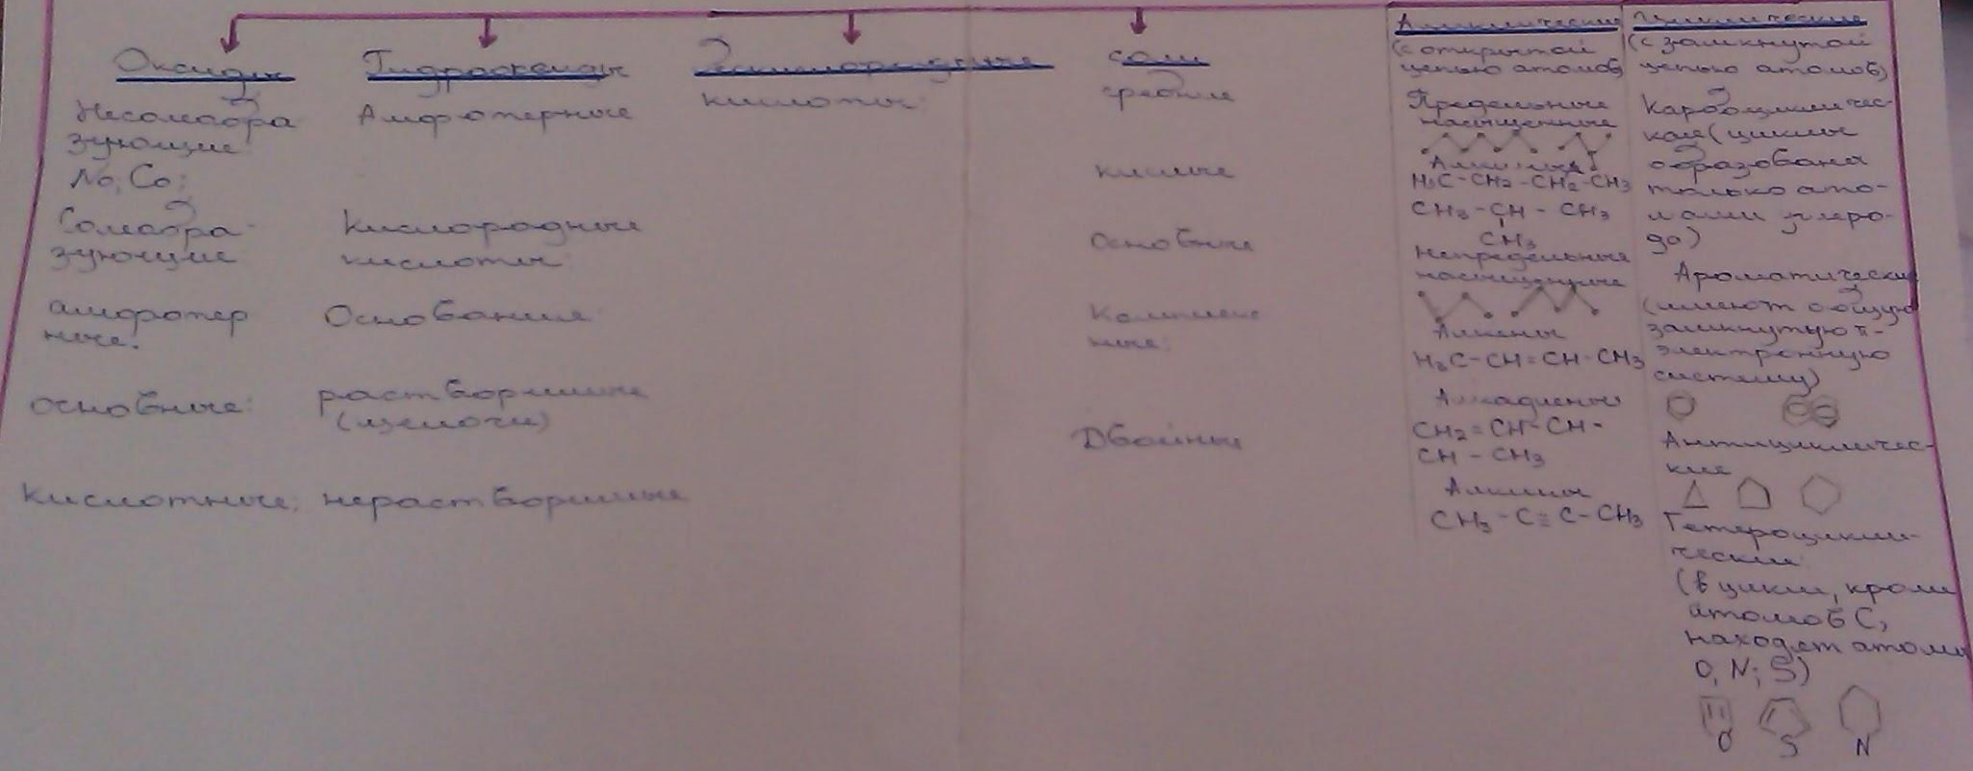 Оксиды
Несолеобра
зующие:
No; Co;
Солеобра-
зующие
амфотер
ные:
основные:
кислотные;
Гидрооксиды
Амфотерные
Кислородные
кислоты:
Основание:
растворимые
(щелочи)
нерастворимые
Бескислородные
кислоты:
соли
средние
кислые
Основные
Комплекс
ные:
Двойные
Ациклические
(с открытой
цепью атомов)
Предельные
насыщенные
H₃C-CH₂-CH₂-CH₃
CH₃-CH-CH₃
CH₃
Непредельные
насыщенные
Алкены
H₃C-CH=CH-CH₃
Алкадиены
CH₂=CH-CH-
CH-CH₃
Алкины
CH₃-C≡C-CH₃
Циклические
(с замкнутой
цепью атомов)
Карбоцикличес-
кие (циклы
образованы
только ато-
мами углеро-
да)
Ароматические
(имеют общую
замкнутую π-
электронную
систему)
Антицикличес-
кие
Гетероцикли-
ческие:
(в цикл, кроме
атомов C,
находят атомы
O, N; S)
O
S
N